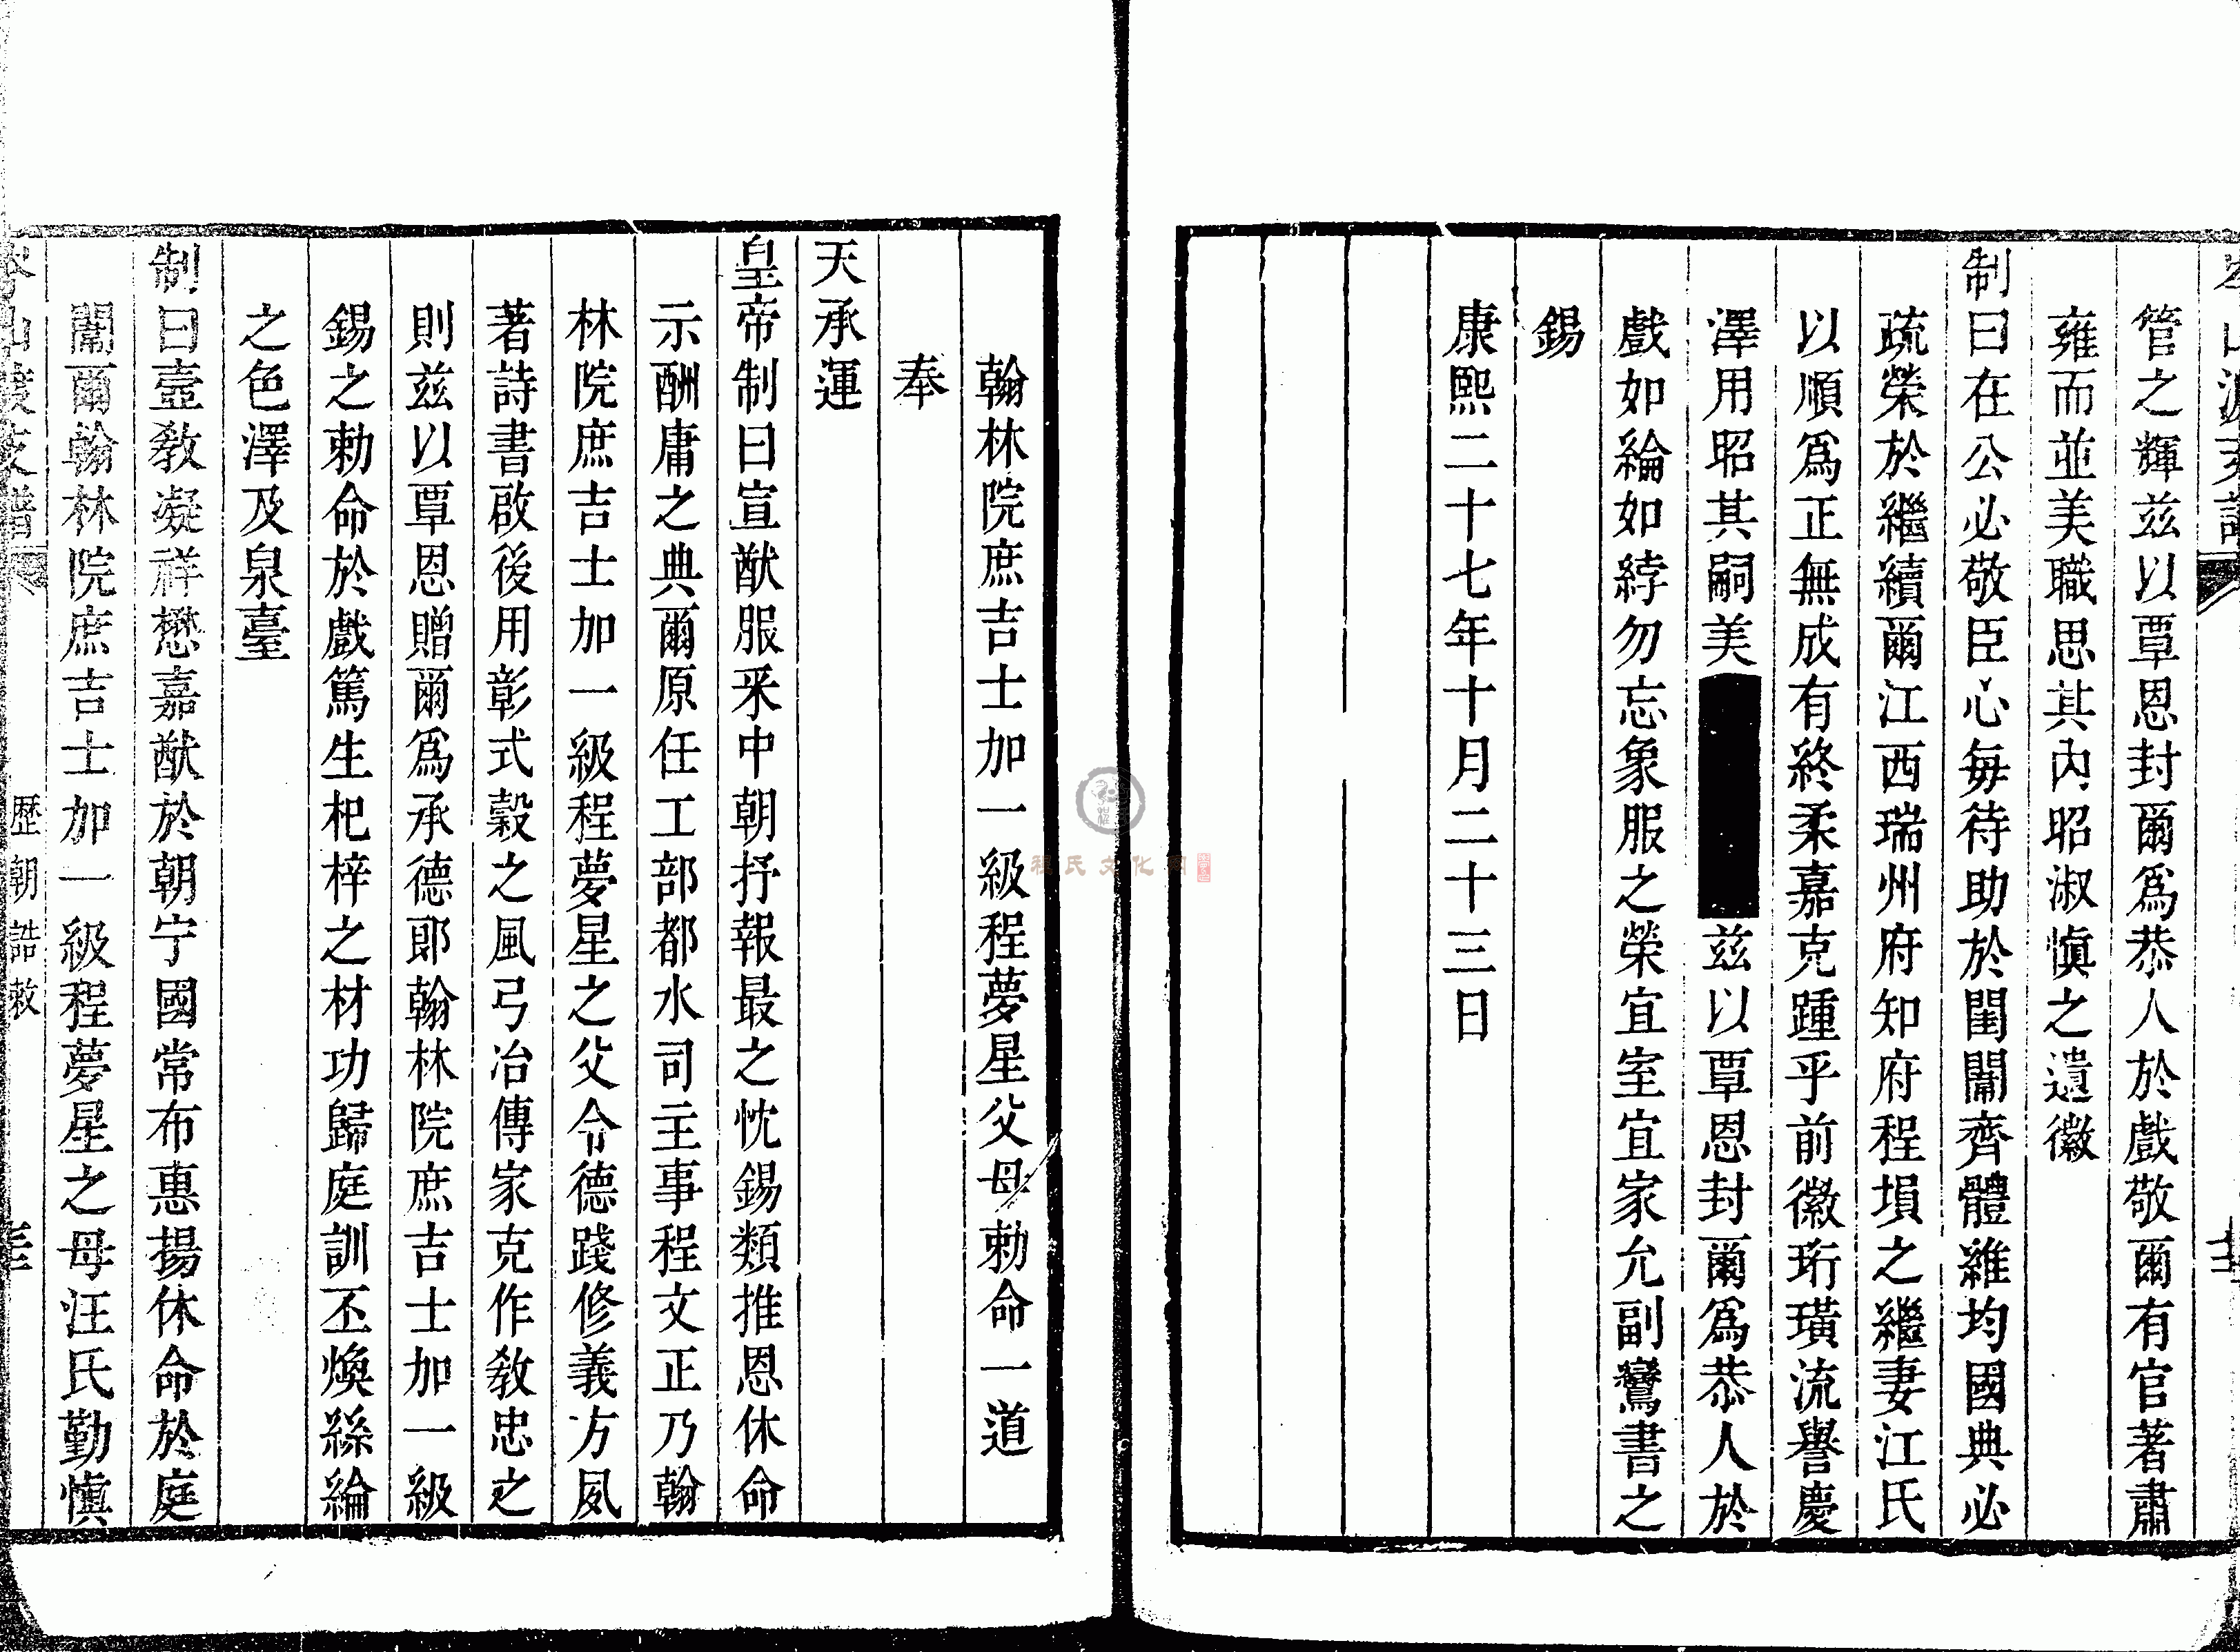 管之輝兹以覃恩封爾爲恭人於戲敬爾有官著肅
雍而並美職思其內昭淑慎之遺徽
制曰在公必敬臣心每待助於閨闈齊體雖均國典必
疏榮於繼續爾江西瑞州府知府程塤之繼妻江氏
以順爲正無成有終柔嘉克踵乎前徽珩璜流譽慶
澤用昭其嗣美兹以覃恩封爾爲恭人於
戲如綸如綍勿忘象服之榮宜室宜家允副鸞書之
錫
康熙二十七年十月二十三日
翰林院庶吉士加一級程夢星父母勅命一道
奉
天承運
皇帝制曰宣猷服采中朝抒報最之忱錫類推恩休命
示酬庸之典爾原任工部都水司主事程文正乃翰
林院庶吉士加一級程夢星之父令德踐修義方夙
著詩書啟後用彰式穀之風弓冶傳家克作教忠之
則兹以覃恩贈爾爲承德郎翰林院庶吉士加一級
錫之勅命於戲篤生杞梓之材功歸庭訓丕煥絲綸
之色澤及泉臺
制曰壼教凝祥懋嘉猷於朝宁國常布惠揚休命於庭
闈爾翰林院庶吉士加一級程夢星之母汪氏勤慎
歷朝誥敕
程氏文化网